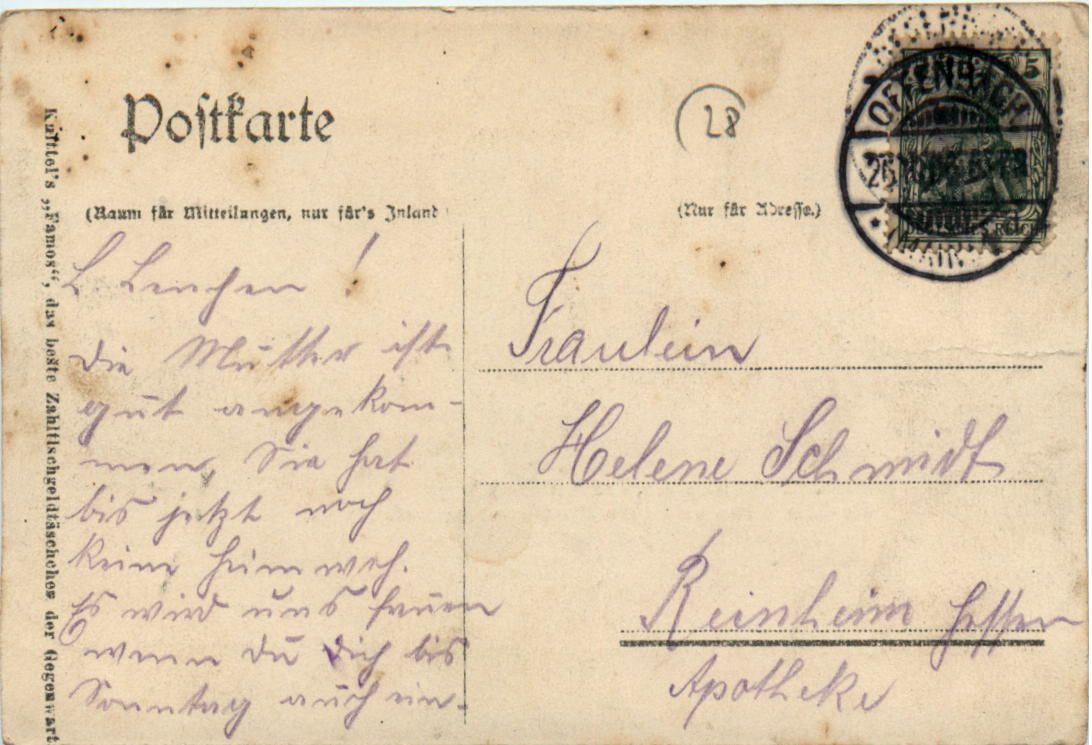 Postkarte
28
(Raum für Mitteilungen, nur für's Inland)
(Nur für Adresse.)
5
OFFENBACH
26
DEUTSCHES REICH
L. Lenchen!
die Mutter ist
gut angekom-
men, Sie hat
bis jetzt noch
keine heimweh.
Es wird uns freuen
wenn du dich bis
Sonntag auch ein-
Fräulein
Helene Schmidt
Reinheim Hessen
Apotheke
Knittel's „Famos“, das beste Zahltischgeldtäschchen der Gegenwart